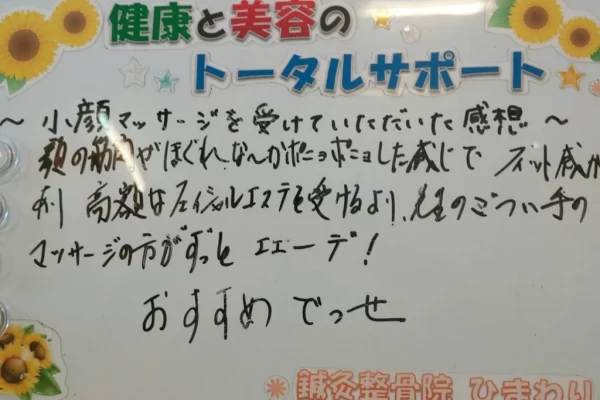 健康と美容の
トータルサポート
~小顔マッサージを受けていただいた感想~
顔の筋肉がほぐれ、なんかポニョポニョした感じで フィット感が
あり 高額なフェイシャルエステを受けるより、先生のごつい手の
マッサージの方がずっと エエーデ!
おすすめでっせ
鍼灸整骨院 ひまわり